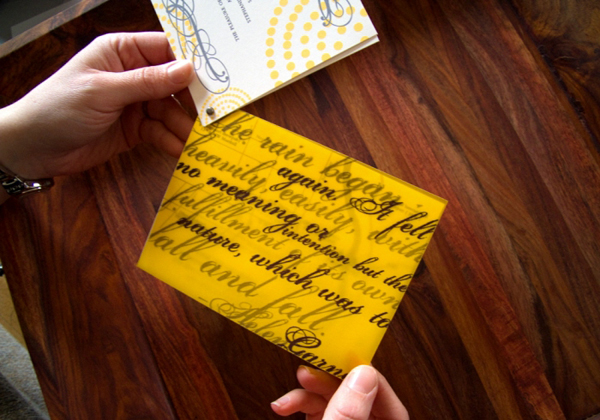 THE PLEASURE OF
the rain began
again. It fell
heavily, easily, with
no meaning or
intention but the
fulfillment of its own
nature, which was to
fall and fall.
Garn